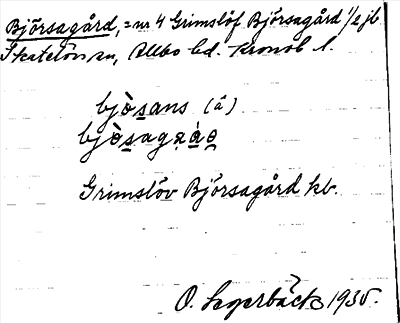 Björsagård, = nr 4 Grimslöf Björsagård 1/2 jb.
Skatelövs sn, Allbo hd. Kronob l.
bjòsans (å)
bjòsag
Grimslöv Björsagård kb.
O. Lagerbäck 1935.